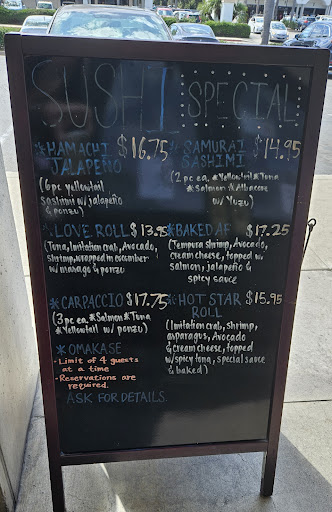 SUSHI SPECIAL
*HAMACHI $16.75
JALAPEÑO
(6pc yellowtail
sashimi w/ jalapeño
& ponzu)
*SAMURAI $14.95
SASHIMI
(2 pc ea. *Yellowtail *Tuna
*Salmon *Albacore
w/ Yuzu)
*LOVE ROLL $13.95
(Tuna, Imitation crab, Avocado,
shrimp, wrapped in cucumber
w/ masago & ponzu
*BAKED AF $17.25
(Tempura shrimp, Avocado,
cream cheese, topped w/
salmon, jalapeño &
spicy sauce
*CARPACCIO $17.75
(3pc ea. *Salmon *Tuna
*Yellowtail w/ ponzu)
*HOT STAR $15.95
ROLL
(Imitation crab, shrimp,
asparagus, Avocado
& cream cheese, topped
w/ spicy tuna, special sauce
& baked)
*OMAKASE
- Limit of 4 guests
at a time
- Reservations are
required.
ASK FOR DETAILS.